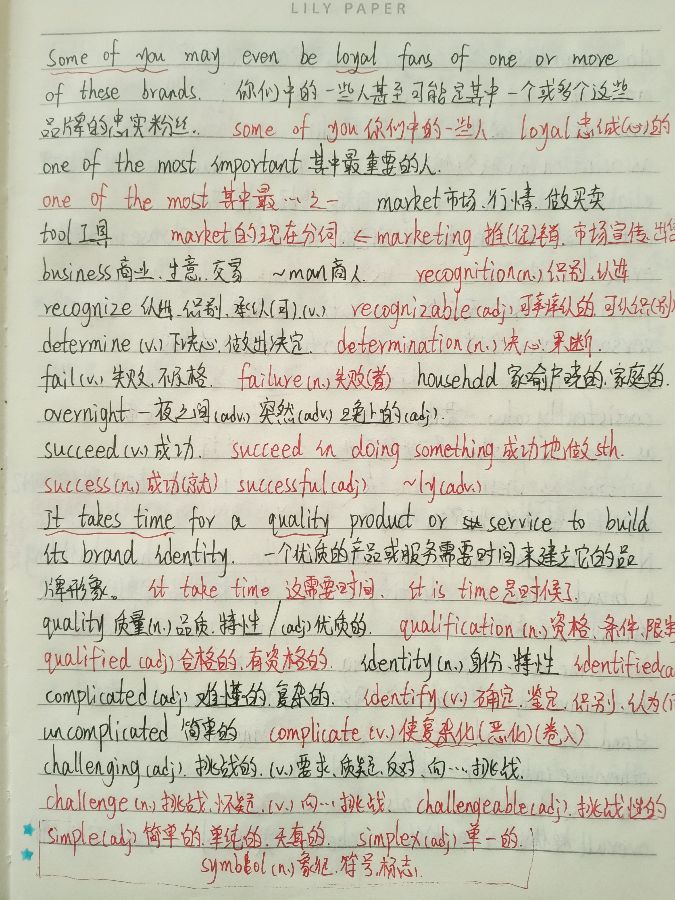 LILY PAPER
Some of you may even be loyal fans of one or more
of these brands. 你们中的一些人甚至可能是其中一个或多个这些
品牌的忠实粉丝. some of you 你们中的一些人 loyal 忠诚(心)的
one of the most important 其中最重要的人.
one of the most 其中最…之一 market 市场.行情.做买卖
tool 工具 market的现在分词.← marketing 推(促)销.市场宣传.出售
business 商业.生意.交易 ~man商人 recognition(n.)识别.认出
recognize 认出.识别.承认(可)(v.) recognizable(adj)可辨认的.可认识(别)
determine (v.)下决心.做出决定. determination(n.)决心.果断.
fail(v.)失败.不及格. failure(n.)失败(者) household 家喻户晓的.家庭的.
overnight 一夜之间(adv.)突然(adv.)晚上的(adj).
succeed(v.)成功. succeed in doing something 成功地做sth.
success(n.)成功(就) successful(adj) ~ly(adv.)
It takes time for a quality product or service to build
its brand identity. 一个优质的产品或服务需要时间来建立它的品
牌形象。 it take time 这需要时间. it is time是时候了.
quality 质量(n.)品质.特性/(adj)优质的. qualification(n.)资格.条件.限制
qualified (adj)合格的.有资格的. identity(n.)身份.特性 identified(a
complicated(adj)难懂的.复杂的. identify(v.)确定.鉴定.识别.认为(
uncomplicated 简单的 complicate(v.)使复杂化(恶化)(卷入)
challenging(adj).挑战的.(v.)要求.质疑.反对.向…挑战.
challenge(n.)挑战.怀疑.(v.)向…挑战 challengeable(adj).挑战性的
simple(adj)简单的.单纯的.天真的. simplex(adj)单一的.
symbol(n.)象征.符号.标志.